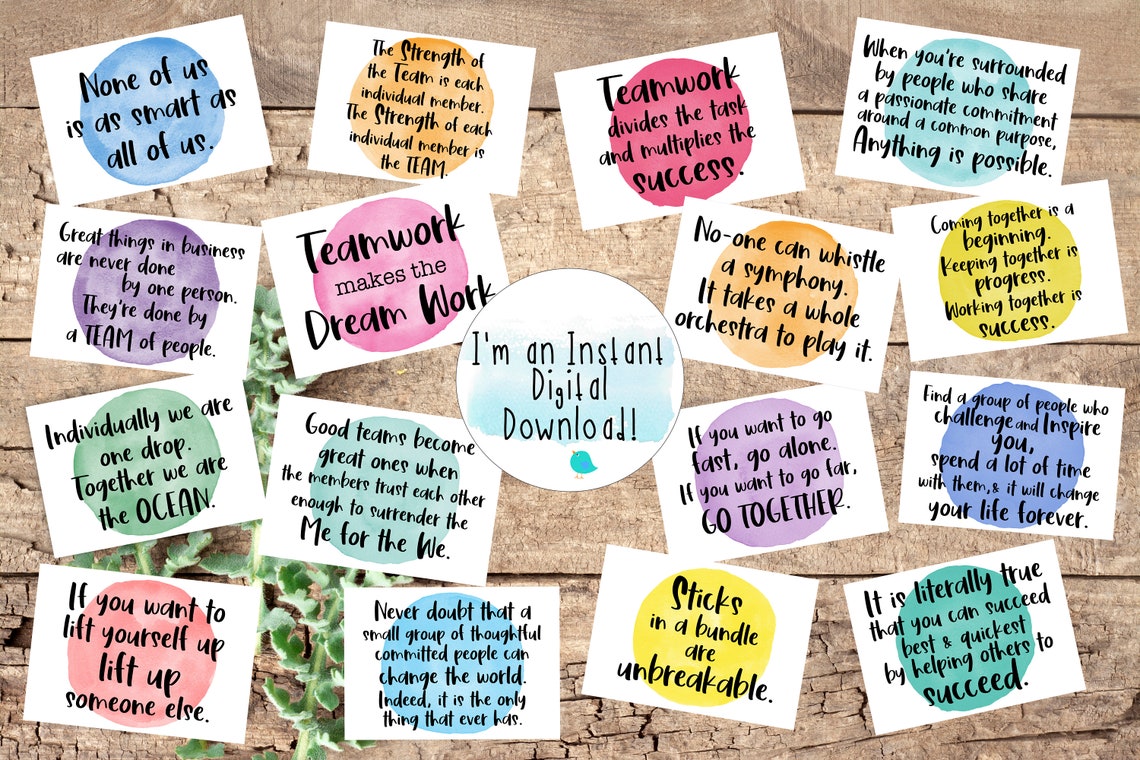 None of us
is as smart as
all of us.
The Strength of
the Team is each
individual member.
The Strength of each
individual member is
the TEAM.
Teamwork
divides the task
and multiplies the
success.
When you're surrounded
by people who share
a passionate commitment
around a common purpose,
Anything is possible.
Great things in business
are never done
by one person.
They're done by
a TEAM of people.
Teamwork
makes the
Dream Work
No-one can whistle
a symphony.
It takes a whole
orchestra to play it.
Coming together is a
beginning.
Keeping together is
progress.
Working together is
success.
I'm an Instant
Digital
Download!
Individually we are
one drop.
Together we are
the OCEAN.
Good teams become
great ones when
the members trust each other
enough to surrender the
Me for the We.
If you want to go
fast, go alone.
If you want to go far,
GO TOGETHER.
Find a group of people who
challenge and Inspire
you,
spend a lot of time
with them,& it will change
your life forever.
If you want to
lift yourself up
lift up
someone else.
Never doubt that a
small group of thoughtful
committed people can
change the world.
Indeed, it is the only
thing that ever has.
Sticks
in a bundle
are
unbreakable.
It is literally true
that you can succeed
best & quickest
by helping others to
succeed.